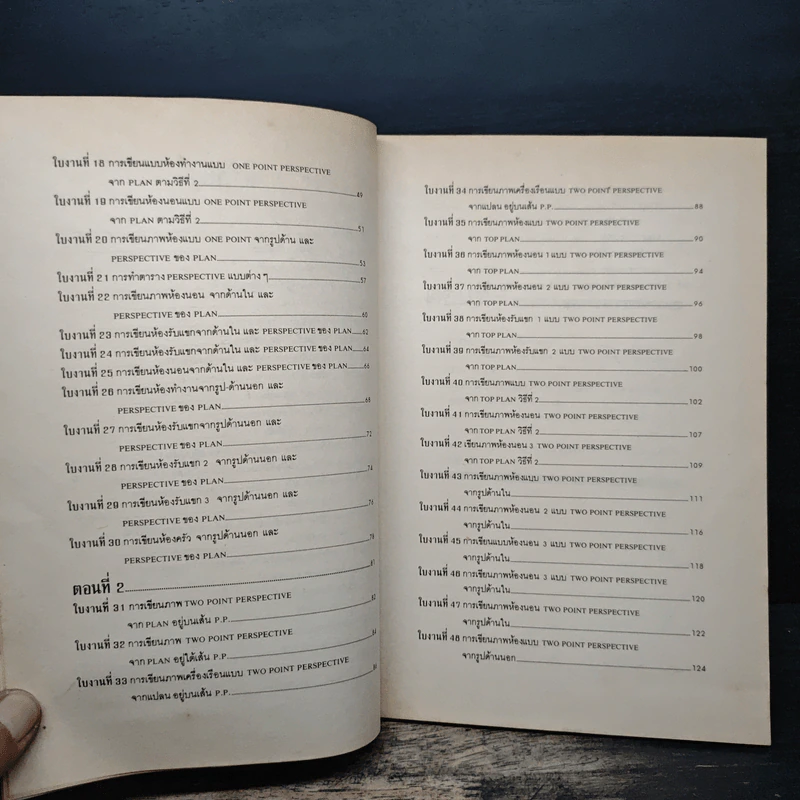 ใบงานที่ 18 การเขียนแบบห้องทำงานแบบ ONE POINT PERSPECTIVE
จาก PLAN ตามวิธีที่ 2 49
ใบงานที่ 19 การเขียนห้องนอนแบบ ONE POINT PERSPECTIVE
จาก PLAN ตามวิธีที่ 2 51
ใบงานที่ 20 การเขียนภาพห้องแบบ ONE POINT จากรูปด้าน และ
PERSPECTIVE ของ PLAN 53
ใบงานที่ 21 การทำตาราง PERSPECTIVE แบบต่าง ๆ 57
ใบงานที่ 22 การเขียนภาพห้องนอน จากด้านใน และ
PERSPECTIVE ของ PLAN 60
ใบงานที่ 23 การเขียนห้องรับแขกจากด้านใน และ PERSPECTIVE ของ PLAN 62
ใบงานที่ 24 การเขียนห้องรับแขกจากด้านใน และ PERSPECTIVE ของ PLAN 64
ใบงานที่ 25 การเขียนห้องนอนจากด้านใน และ PERSPECTIVE ของ PLAN 66
ใบงานที่ 26 การเขียนห้องทำงานจากรูป-ด้านนอก และ
PERSPECTIVE ของ PLAN 68
ใบงานที่ 27 การเขียนห้องรับแขกจากรูปด้านนอก และ
PERSPECTIVE ของ PLAN 72
ใบงานที่ 28 การเขียนห้องรับแขก 2 จากรูปด้านนอก และ
PERSPECTIVE ของ PLAN 74
ใบงานที่ 29 การเขียนห้องรับแขก 3 จากรูปด้านนอก และ
PERSPECTIVE ของ PLAN 76
ใบงานที่ 30 การเขียนห้องครัว จากรูปด้านนอก และ
PERSPECTIVE ของ PLAN 78
ตอนที่ 2 81
ใบงานที่ 31 การเขียนภาพ TWO POINT PERSPECTIVE
จาก PLAN อยู่บนเส้น P.P. 82
ใบงานที่ 32 การเขียนภาพ TWO POINT PERSPECTIVE
จาก PLAN อยู่ใต้เส้น P.P. 84
ใบงานที่ 33 การเขียนภาพเครื่องเรือนแบบ TWO POINT PERSPECTIVE
จากแปลน อยู่บนเส้น P.P. 86
ใบงานที่ 34 การเขียนภาพเครื่องเรือนแบบ TWO POINT PERSPECTIVE
จากแปลน อยู่บนเส้น P.P. 88
ใบงานที่ 35 การเขียนภาพห้องแบบ TWO POINT PERSPECTIVE
จาก TOP PLAN 90
ใบงานที่ 36 การเขียนภาพห้องนอน 1 แบบ TWO POINT PERSPECTIVE
จาก TOP PLAN 94
ใบงานที่ 37 การเขียนภาพห้องนอน 2 แบบ TWO POINT PERSPECTIVE
จาก TOP PLAN 96
ใบงานที่ 38 การเขียนภาพห้องรับแขก 1 แบบ TWO POINT PERSPECTIVE
จาก TOP PLAN 98
ใบงานที่ 39 การเขียนภาพห้องรับแขก 2 แบบ TWO POINT PERSPECTIVE
จาก TOP PLAN 100
ใบงานที่ 40 การเขียนภาพแบบ TWO POINT PERSPECTIVE
จาก TOP PLAN วิธีที่ 2 102
ใบงานที่ 41 การเขียนภาพห้องนอน TWO POINT PERSPECTIVE
จาก TOP PLAN วิธีที่ 2 107
ใบงานที่ 42 เขียนภาพห้องนอน 3 TWO POINT PERSPECTIVE
จาก TOP PLAN วิธีที่ 2 109
ใบงานที่ 43 การเขียนภาพห้องแบบ TWO POINT PERSPECTIVE
จากรูปด้านใน 111
ใบงานที่ 44 การเขียนภาพห้องนอน 2 แบบ TWO POINT PERSPECTIVE
จากรูปด้านใน 116
ใบงานที่ 45 การเขียนแบบห้องนอน 3 แบบ TWO POINT PERSPECTIVE
จากรูปด้านใน 118
ใบงานที่ 46 การเขียนภาพห้องนอน 3 แบบ TWO POINT PERSPECTIVE
จากรูปด้านใน 120
ใบงานที่ 47 การเขียนภาพห้องนอน TWO POINT PERSPECTIVE
จากรูปด้านใน 122
ใบงานที่ 48 การเขียนภาพห้องแบบ TWO POINT PERSPECTIVE
จากรูปด้านนอก 124